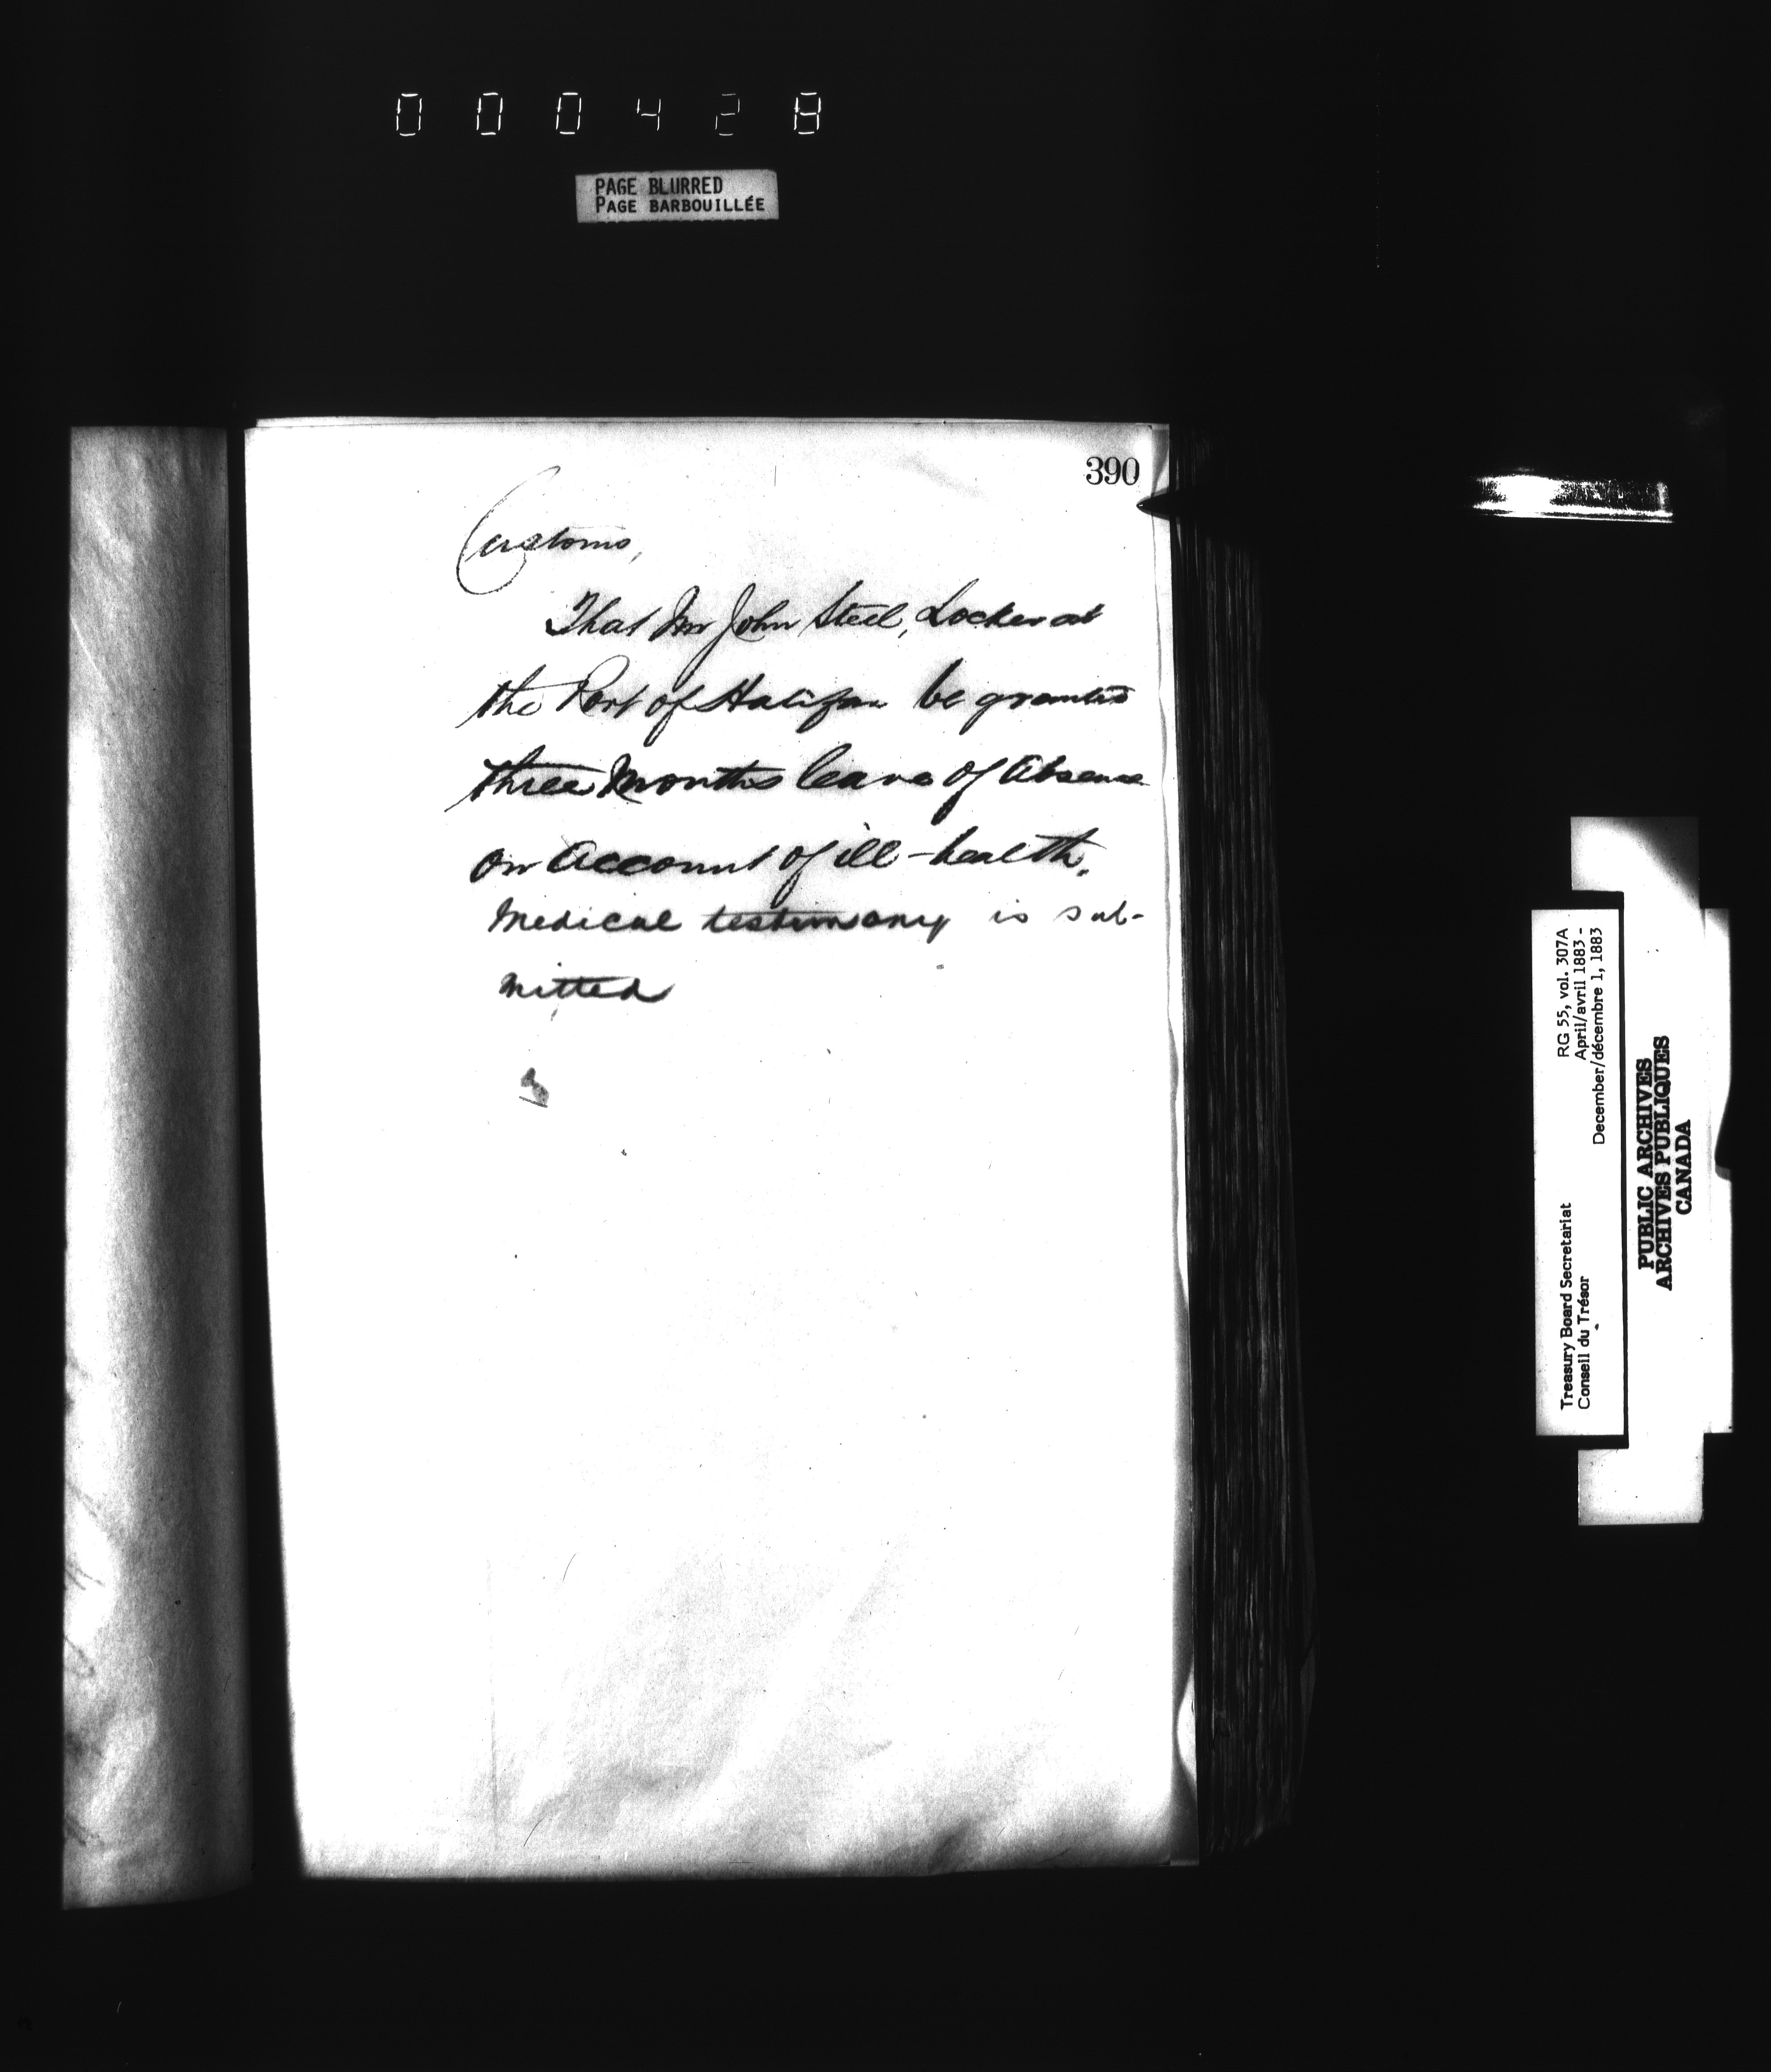 000428
PAGE BLURRED
PAGE BARBOUILLÉE
390
Customs,
That Mr John Steel, Locker at
the Port of Halifax be granted
three Months leave of Absence
on Account of ill-health.
Medical testimony is sub-
mitted
Treasury Board Secretariat RG 55, vol. 307A
Conseil du Trésor April/avril 1883 -
December/décembre 1, 1883
PUBLIC ARCHIVES
ARCHIVES PUBLIQUES
CANADA